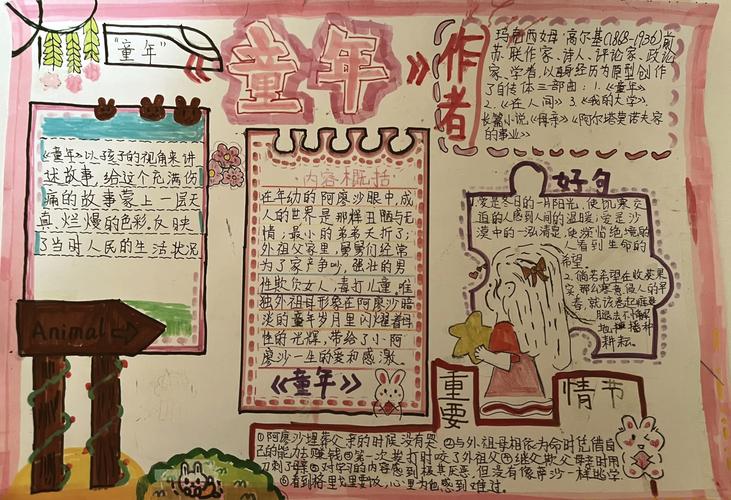 "童年"
《童年》
作者
玛克西姆·高尔基(1868-1936)前
苏联作家、诗人、评论家、政论
家、学者,以自身经历为原型创作
了自传体三部曲:1.《童年》
2.《在人间》3.《我的大学》.
长篇小说《母亲》《阿尔塔莫诺夫家
的事业》
《童年》以孩子的视角来讲
述故事,给这个充满伤
痛的故事蒙上一层天
真、烂熳的色彩.反映
了当时人民的生活状况
Animal
内容概括
在年幼的阿廖沙眼中,成
人的世界是那样丑陋与无
情:最小的弟弟夭折了;
外祖父家里,舅舅们经常
为了家产争吵,强壮的男
性欺负女人,毒打儿童,唯
独外祖母形象在阿廖沙暗
淡的童年岁月里闪耀着母
性的光辉,带给了小阿
廖沙一生的爱和感激.
《童年》
好句
1.爱是冬日的一月阳光,使饥寒交
迫的人感到人间的温暖;爱是沙
漠中的一泓清泉,使濒临绝境的
人看到生命的
希望
2.倘若希望在收获果
实那么寒意侵人的早
春,就该卷起裤
腿去不懈
地
播种
耕耘.
重要
情节
①阿廖沙埋葬父亲的时候没有哭②与外祖母相依为命时凭借自
己的能力赚钱③第一次挨打时咬了外祖父④继父欺父母亲时用
刀刺了
⑤对学习的内容感到极其厌恶,但没有像萨沙一样逃学.
⑥看到
心里为
感到难过.